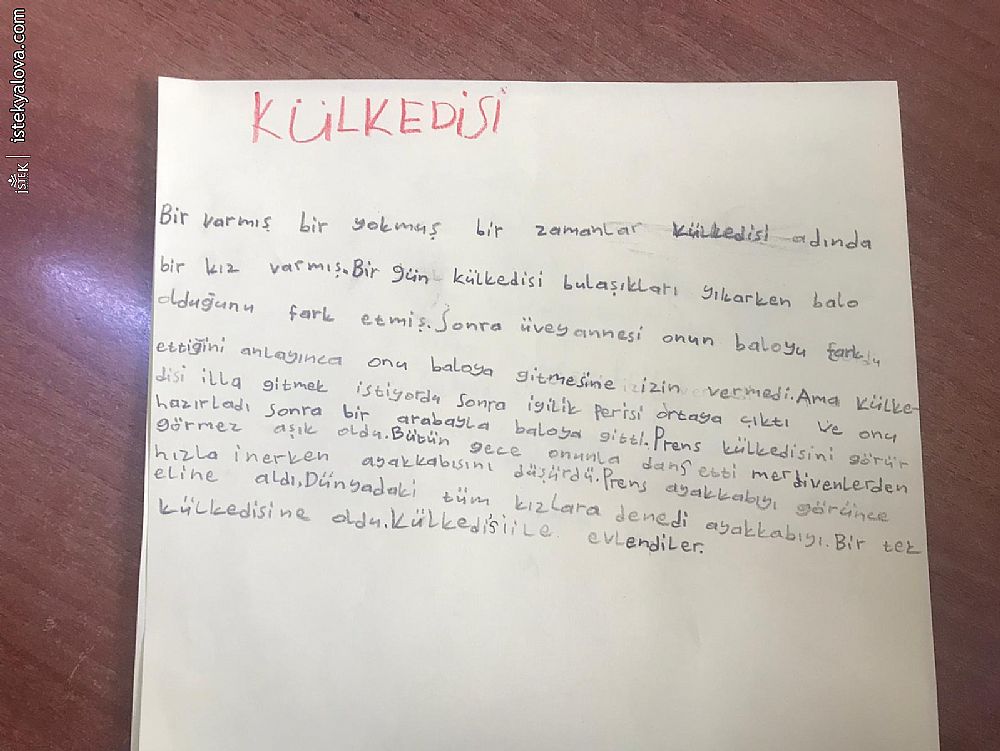 iSTEK | istekyalova.com
KÜLKEDİSİ
Bir varmış bir yokmuş bir zamanlar külkedisi adında
bir kız varmış. Bir gün külkedisi bulaşıkları yıkarken balo
olduğunu fark etmiş. Sonra üvey annesi onun baloyu fark
ettiğini anlayınca onu baloya gitmesine izin vermedi. Ama külke-
disi illa gitmek istiyordu sonra iyilik perisi ortaya çıktı ve onu
hazırladı sonra bir arabayla baloya gitti. Prens külkedisini görür
görmez aşık oldu. Bütün gece onunla dans etti merdivenlerden
hızla inerken ayakkabısını düşürdü. Prens ayakkabıyı görünce
eline aldı. Dünyadaki tüm kızlara denedi ayakkabıyı. Bir tek
külkedisine oldu. Külkedisi ile evlendiler.